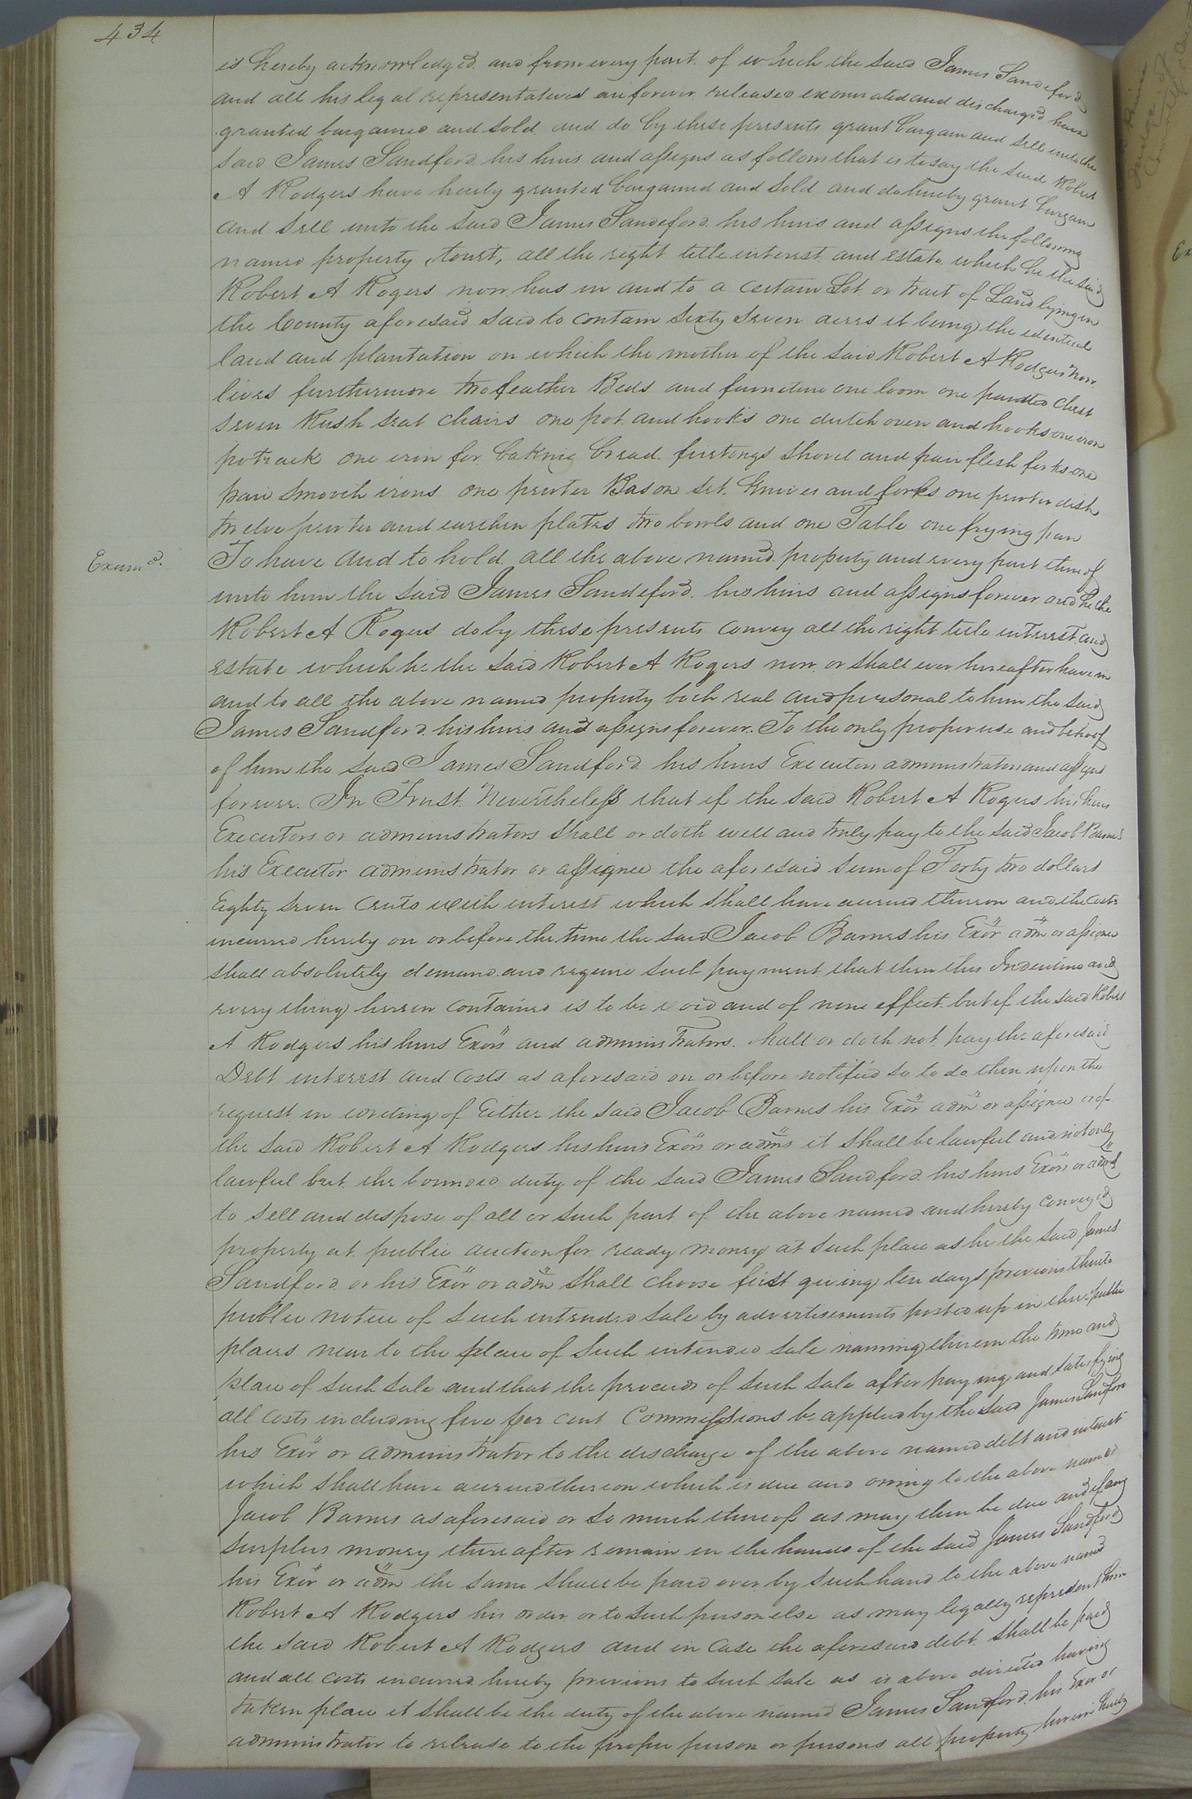 434
is hereby acknowledged and from every part of which the said James Sandeford
and all his legal representatives are forever released exonerated and discharged have
granted bargained and sold and do by these presents grant bargain and sell unto the
said James Sandford his heirs and assigns as follows that is to say the said Robert
A Rodgers have hereby granted bargained and sold and do hereby grant bargain
and sell unto the said James Sandeford his heirs and assigns the following
named property towit, all the right title interest and estate which he the said
Robert A Rogers now has in and to a certain Lot or tract of Land lying in
the County aforesaid said to contain Sixty Seven acres it being the identical
land and plantation on which the mother of the said Robert A Rodgers now
lives furthermore two feather Beds and furniture one loom one painted Chest
Seven Rush Seat chairs one pot and hooks one dutch oven and hooks one iron
potrack one iron for baking bread firetongs Shovel and pair flesh forks one
pair Smooth irons one pewter Bason Set Knives and forks one pewter dish
twelve pewter and earthen plates two bowls and one Table one frying pan
Exam^d.
To have and to hold all the above named property and every part thereof
unto him the said James Sandeford his heirs and assigns forever and he the
Robert A Rogers do by these presents convey all the right title interest and
Estate which he the said Robert A Rogers now or shall ever hereafter have in
and to all the above named property both real and personal to him the said
James Sandford his heirs and assigns forever. To the only proper use and behoof
of him the said James Sandford his heirs Executors administrators and assigns
forever. In Trust Nevertheless that if the said Robert A Rogers his heirs
Executors or administrators Shall or doth well and truly pay to the said Jacob Barnes
his Executor administrator or assignee the aforesaid Sum of Forty two dollars
Eighty Seven Cents with interest which Shall have accrued thereon and the costs
incurred hereby on or before the time the said Jacob Barnes his Exör adm̈ or assignee
shall absolutely demand and require such payment that then this Indenture and
every thing herein contained is to be void and of none effect but if the said Robert
A Rodgers his heirs Exörs and administrators. Shall or doth not pay the aforesaid
Debt interest and Costs as aforesaid on or before notified so to do then upon the
request in writing of Either the said Jacob Barnes his Exör adm̈ or assignee or of
the said Robert A Rodgers his heirs Exörs or adm̈s it Shall be lawful and not only
lawful but the bounded duty of the said James Sandford his heirs Exörs or adm̈s
to sell and dispose of all or such part of the above named and hereby conveyed
property at public auction for ready money at such place as he the said James
Sandford or his Exör or adm̈ Shall choose first giving ten days previous thereto
public notice of such intended sale by advertisements posted up in three public
places near to the place of such intended sale naming therein the time and
place of such sale and that the proceeds of such sale after paying and satisfying
all costs including five per cent Commissions be applied by the said James Sandford
his Exör or administrator to the discharge of the above named debt and interest
which shall have accrued thereon which is due and owing to the above named
Jacob Barnes as aforesaid or so much thereof as may then be due and if any
surplus money there after remain in the hands of the said James Sandford
his Exör or adm̈ the same shall be paid over by such hand to the above named
Robert A Rodgers his order or to such person else as may legally represent him
the said Robert A Rodgers and in case the aforesaid debt shall be paid
and all costs incurred hereby previous to such sale as is above directed having
taken place it shall be the duty of the above named James Sandford his Exör or
administrator to release to the proper person or persons all property herein hereby